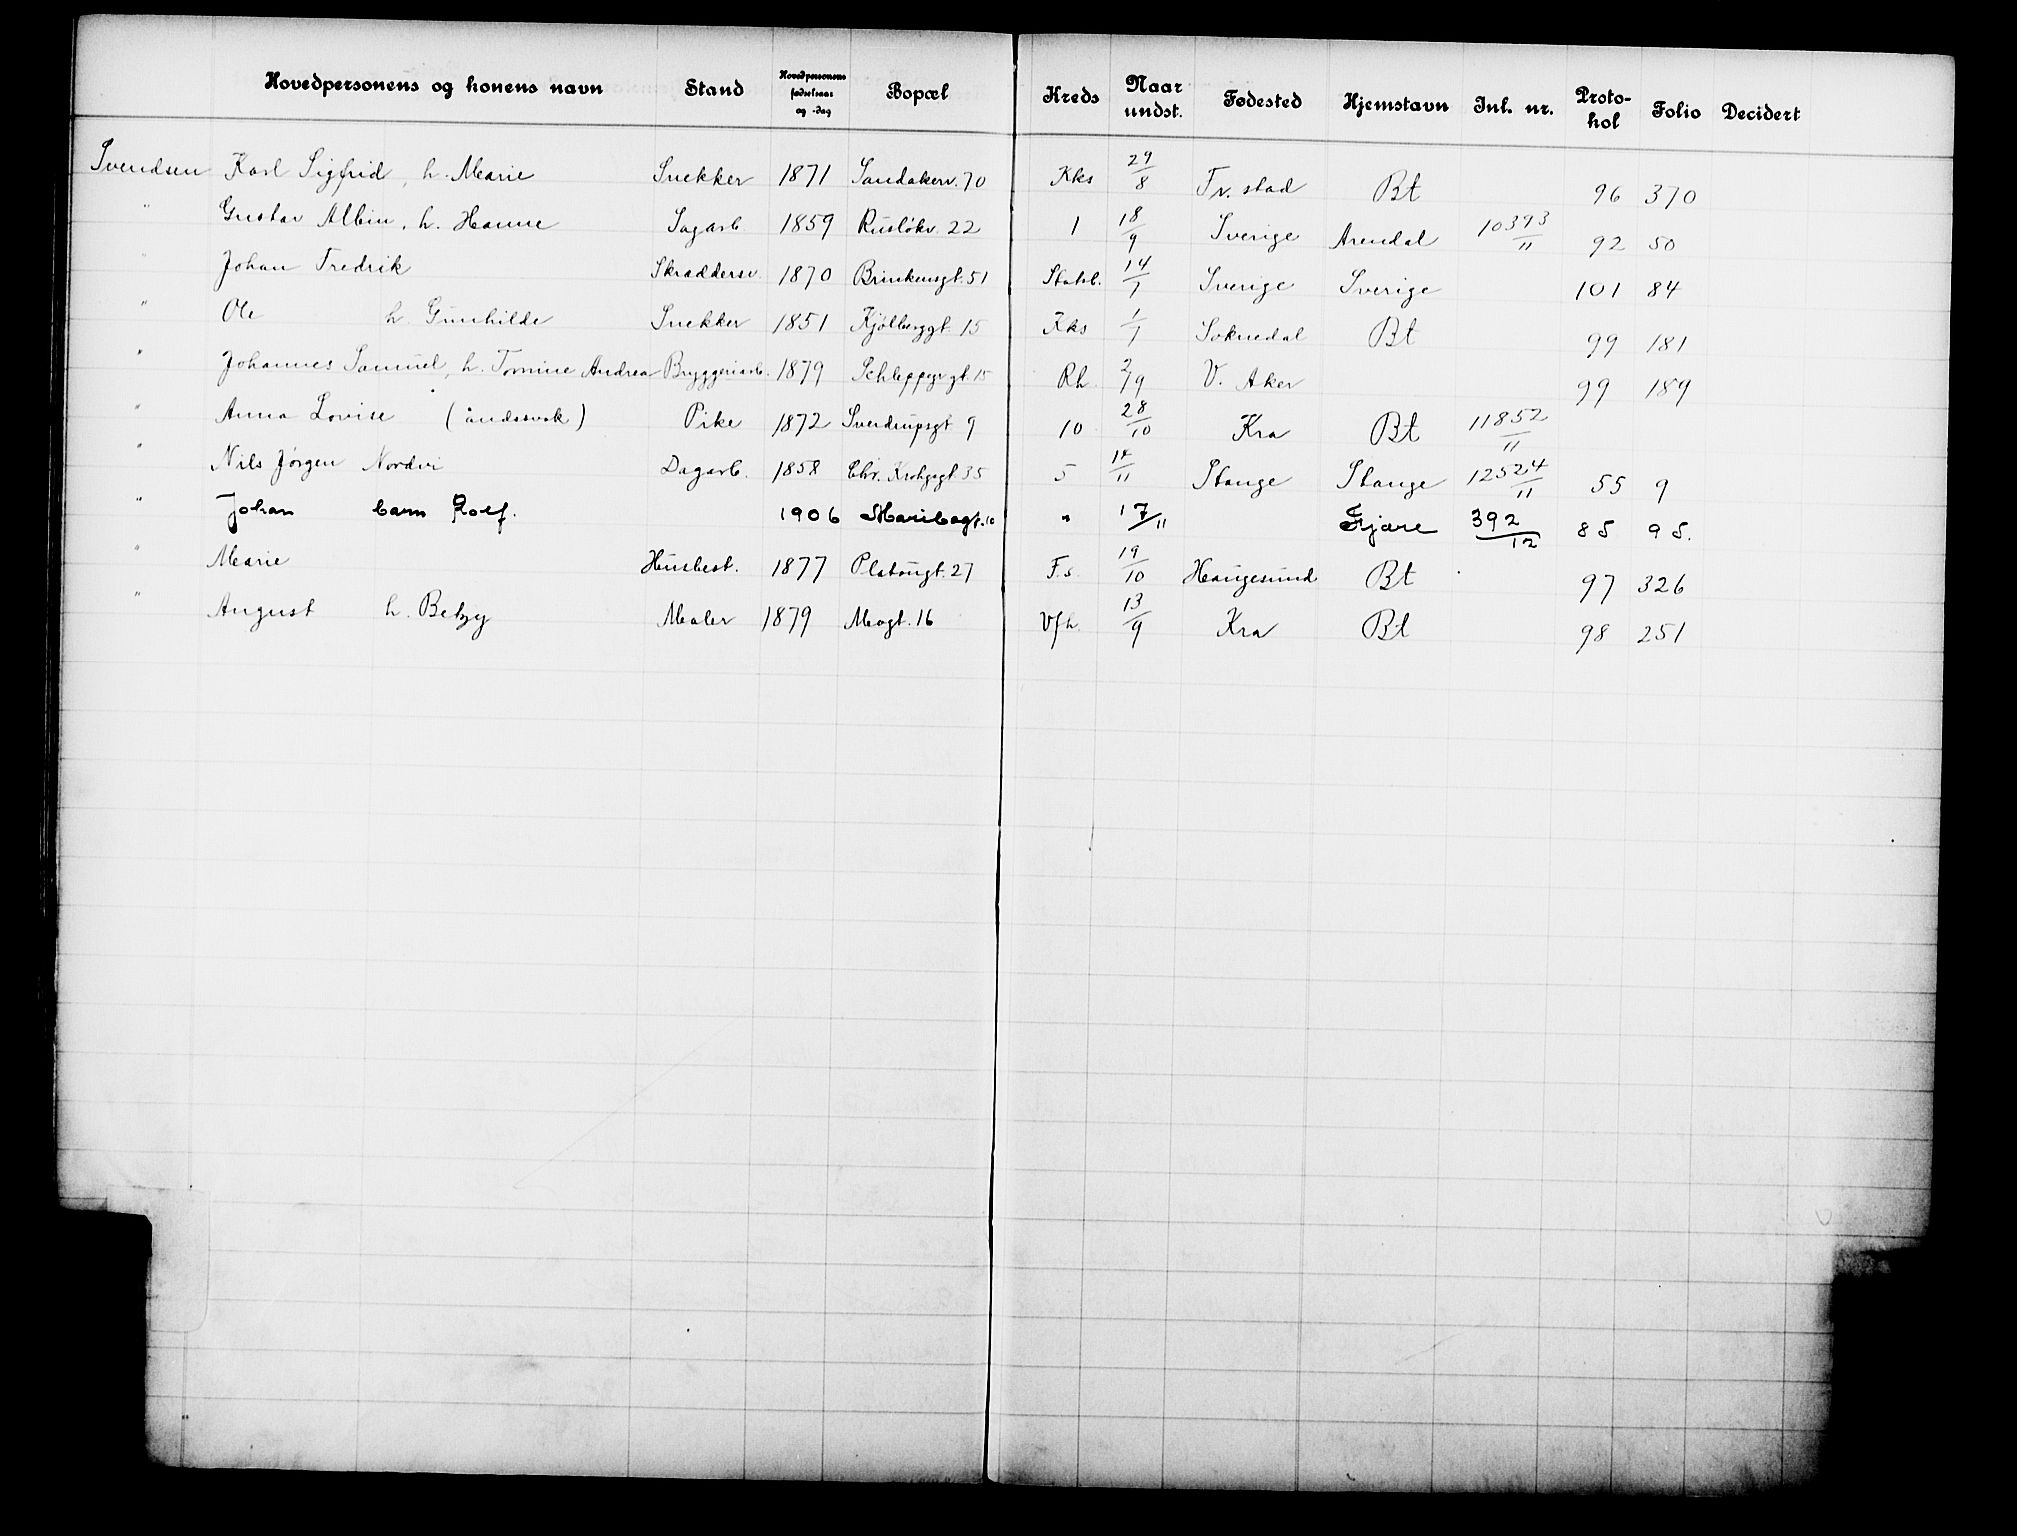 Hovedpersonens og konens navn Stand Hovedpersonens fødselsaar og -dag Bopæl Kreds Naar undst. Fødested Hjemstavn Inl. nr. Protokol Folio Decidert
Svendsen Karl Sigfrid, h. Marie Snekker 1871 Sandakerv. 70 Kks 29/8 Fr. stad Bt 96 370
" Gustav Albin, h. Hanne Sagarb. 1859 Rusløkv. 22 1 18/9 Sverige Arendal 10393/11 92 50
" Johan Fredrik Skræddersv. 1870 Brinkensgt. 51 Statsb. 14/1 Sverige Sverige 101 84
" Ole h. Gunhilde Snekker 1851 Kjølberggt. 15 Kks 1/1 Soknedal Bt 99 181
" Johannes Samuel, h. Tomine Andrea Bryggeriarb. 1879 Schleppegrgt. 15 Rh. 2/9 V. Aker 99 189
" Anna Lovise (åndssvak) Pike 1872 Sverdrupsgt 9 10 28/10 Kra Bt 11852/11
" Nils Jørgen Nordvi Dagarb. 1858 Chr. Krohgsgt. 35 5 14/11 Stange Stange 12524/11 55 9
" Johan barn Rolf. 1906 Maribogt. 10 " 17/11 Fjære 392/12 85 95.
" Marie Husbest. 1877 Platougt. 27 F.s. 19/10 Haugesund Bt 97 326
" August h. Betzy Maler 1879 Mogt. 16 Vfh. 13/9 Kra Bt 98 251